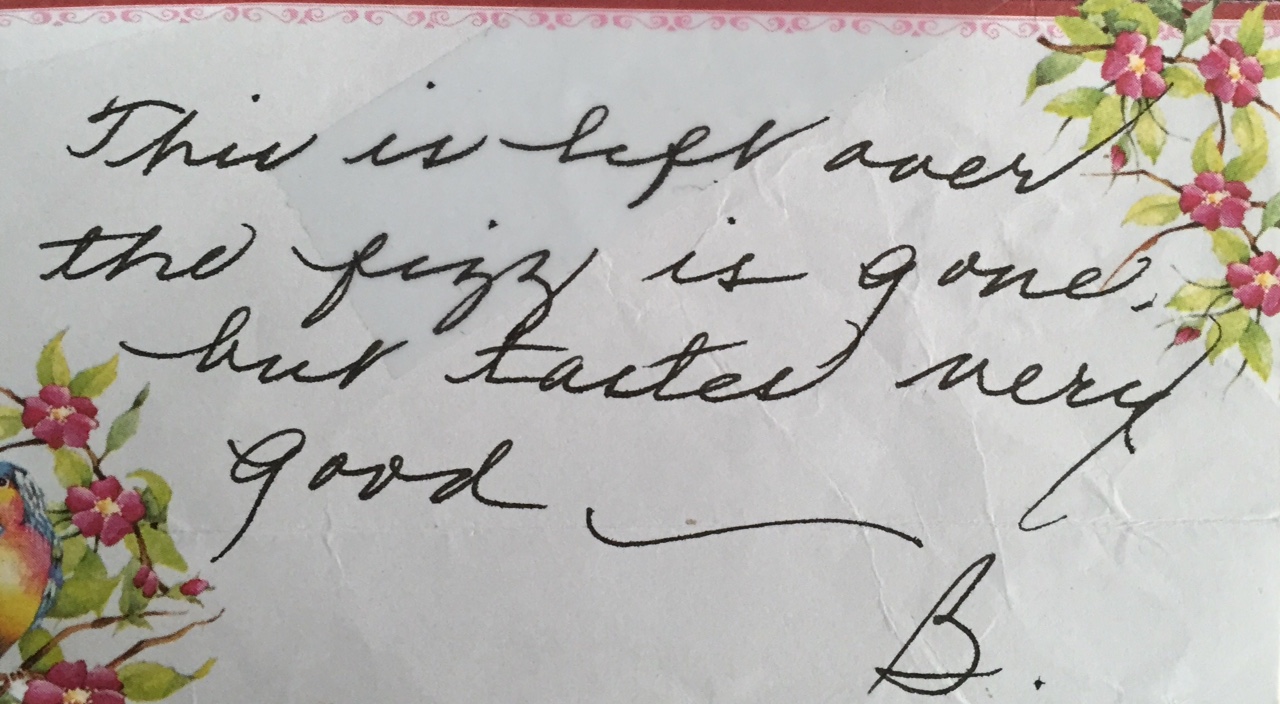 This is left over
the fizz is gone,
but tastes very
good
B.